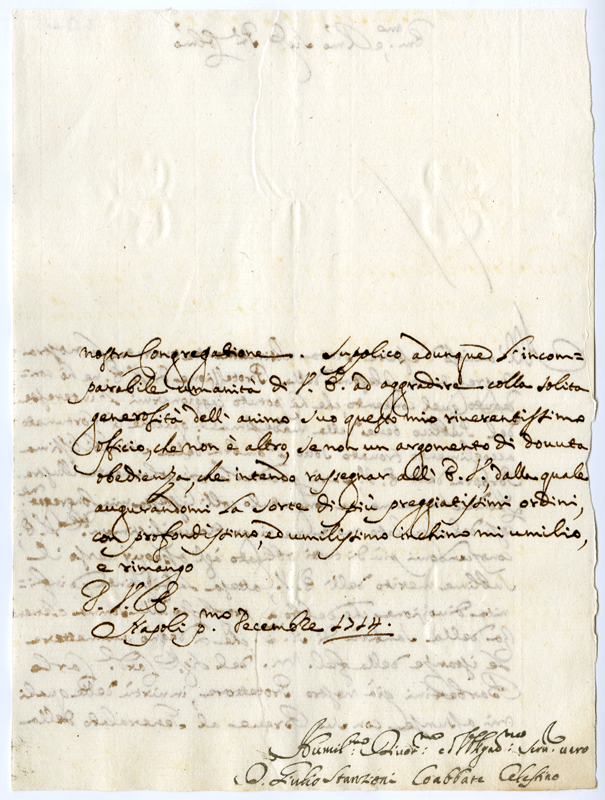 nostra Congregatione. Suplico adunque l'incom=
parabile umanità di V. E. ad aggradire colla solita
generosità dell'animo suo questo mio riverentissimo
officio, che non è altro, se non un argomento di dovuta
obedienza, che intendo rassegnar all'E. V., dalla quale
augurandomi la sorte di più preggiatissimi ordini,
con profondissimo, ed umilissimo inchino mi umilio,
e rimango
D. V. E.
Napoli p.mo Decembre 1714.
Humil.mo Divot.mo e Obligat.mo Serv. vero
D. Giulio Stanzioni Coabbate Celestino